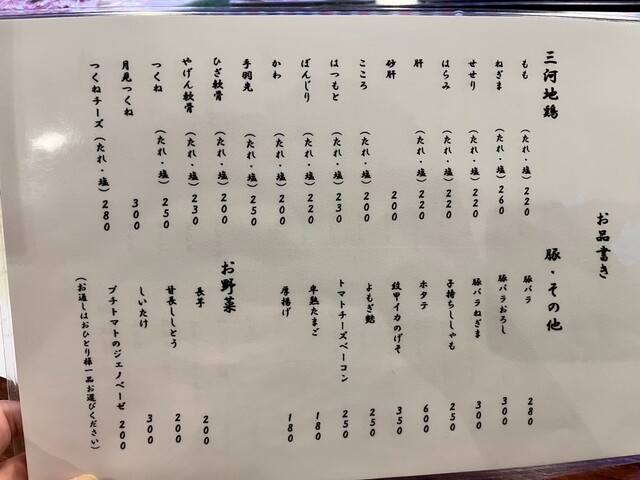 お品書き
三河地鶏
もも (たれ・塩) 220
ねぎま (たれ・塩) 260
せせり (たれ・塩) 220
はらみ (たれ・塩) 220
肝 (たれ・塩) 220
砂肝 200
こころ (たれ・塩) 200
はつもと (たれ・塩) 230
ぼんじり (たれ・塩) 220
かわ (たれ・塩) 200
手羽先 (たれ・塩) 250
ひざ軟骨 (たれ・塩) 200
やげん軟骨 (たれ・塩) 230
つくね (たれ・塩) 250
月見つくね 300
つくねチーズ (たれ・塩) 280
豚・その他
豚バラ 280
豚バラおろし 300
豚バラねぎま 300
子持ちししゃも 250
ホタテ 600
紋甲イカのげそ 350
よもぎ麩 250
トマトチーズベーコン 250
半熟たまご 180
厚揚げ 180
お野菜
長芋 200
甘長ししとう 200
しいたけ 300
プチトマトのジェノベーゼ 200
(お通しはおひとり様一品お選びください)